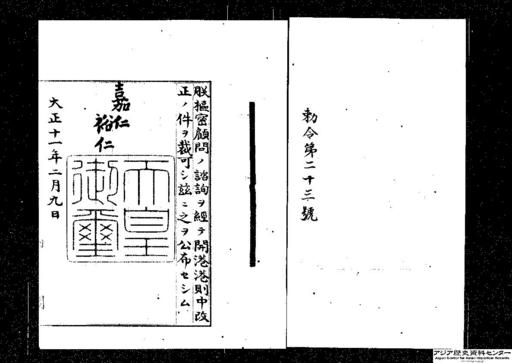 勅令第二十三號
朕樞密顧問ノ諮詢ヲ經テ開港港則中改
正ノ件ヲ裁可シ茲ニ之ヲ公布セシム
嘉仁
裕仁
天皇御璽
大正十一年二月九日
アジア歴史資料センター
Japan Center for Asian Historical Records